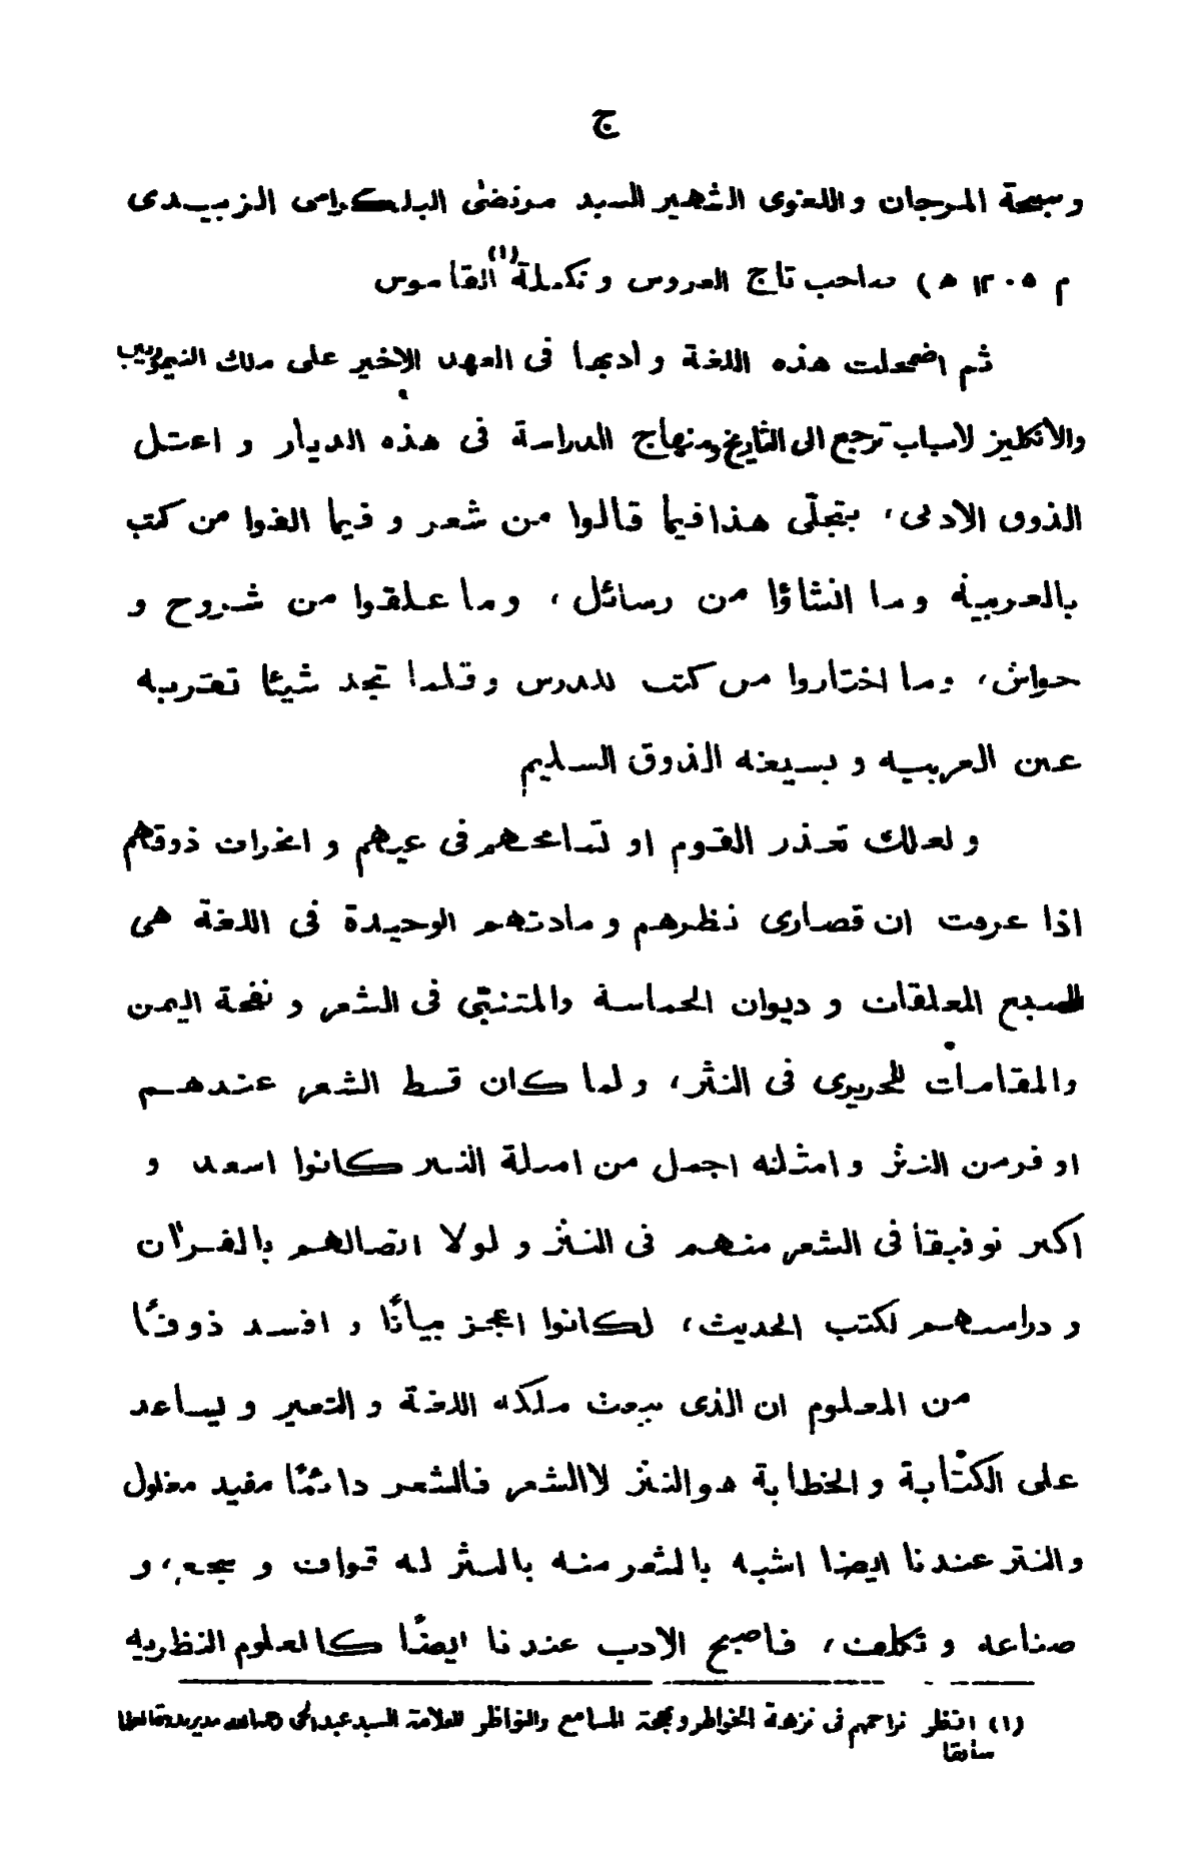 ج
وسبحة المرجان واللغوى الشهير السيد مرتضى البلكرامى الزبيدى
م ١٢٠٥ ه) صاحب تاج العروس وتكملة القاموس (١)
ثم اضمحلت هذه اللغة وأدبها فى العهد الاخير على ملك التيموريين
والأنكليز لاسباب ترجع الى التاريخ ومنهاج الدراسة فى هذه الديار و اعتل
الذوق الادبى، يتجلّى هذا فيما قالوا من شعر و فيما الفوا من كتب
بالعربية وما انشاؤا من رسائل، وما علقوا من شروح و
حواش، وما اختاروا من كتب للدرس وقلما تجد شيئا تقربه
عين العربيه و يسيغه الذوق السليم
و لعلك تعذر القوم او تسامحهم فى عيهم و انحراف ذوقهم
اذا عرفت ان قصارى نظرهم و مادتهم الوحيدة فى اللغة هى
السبع المعلقات و ديوان الحماسة والمتنبّى فى الشعر و نفحة اليمن
والمقامات للحريرى فى النثر، و لما كان قسط الشعر عندهم
اوفر من النثر و امثلته اجمل من امثلة النثر كانوا اسعد و
اكبر توفيقاً فى الشعر منهم فى النثر و لولا اتصالهم بالقرآن
و دراستهم لكتب الحديث، لكانوا اعجز بيانًا و افسد ذوقًا
من المعلوم ان الذى يبعث ملكة اللغة و التعبير و يساعد
على الكتابة و الخطابة هو النثر لا الشعر فالشعر دائمًا مقيد مغلول
والنثر عندنا ايضا اشبه بالشعر منه بالنثر له قواف و سجع، و
صناعه و تكلف، فاصبح الادب عندنا ايضًا كالعلوم النظريه
(١) انظر تراجمهم فى نزهة الخواطر وبهجة المسامع والنواظر للعلامة السيد عبد الحى مدير ندوة العلما
سابقا